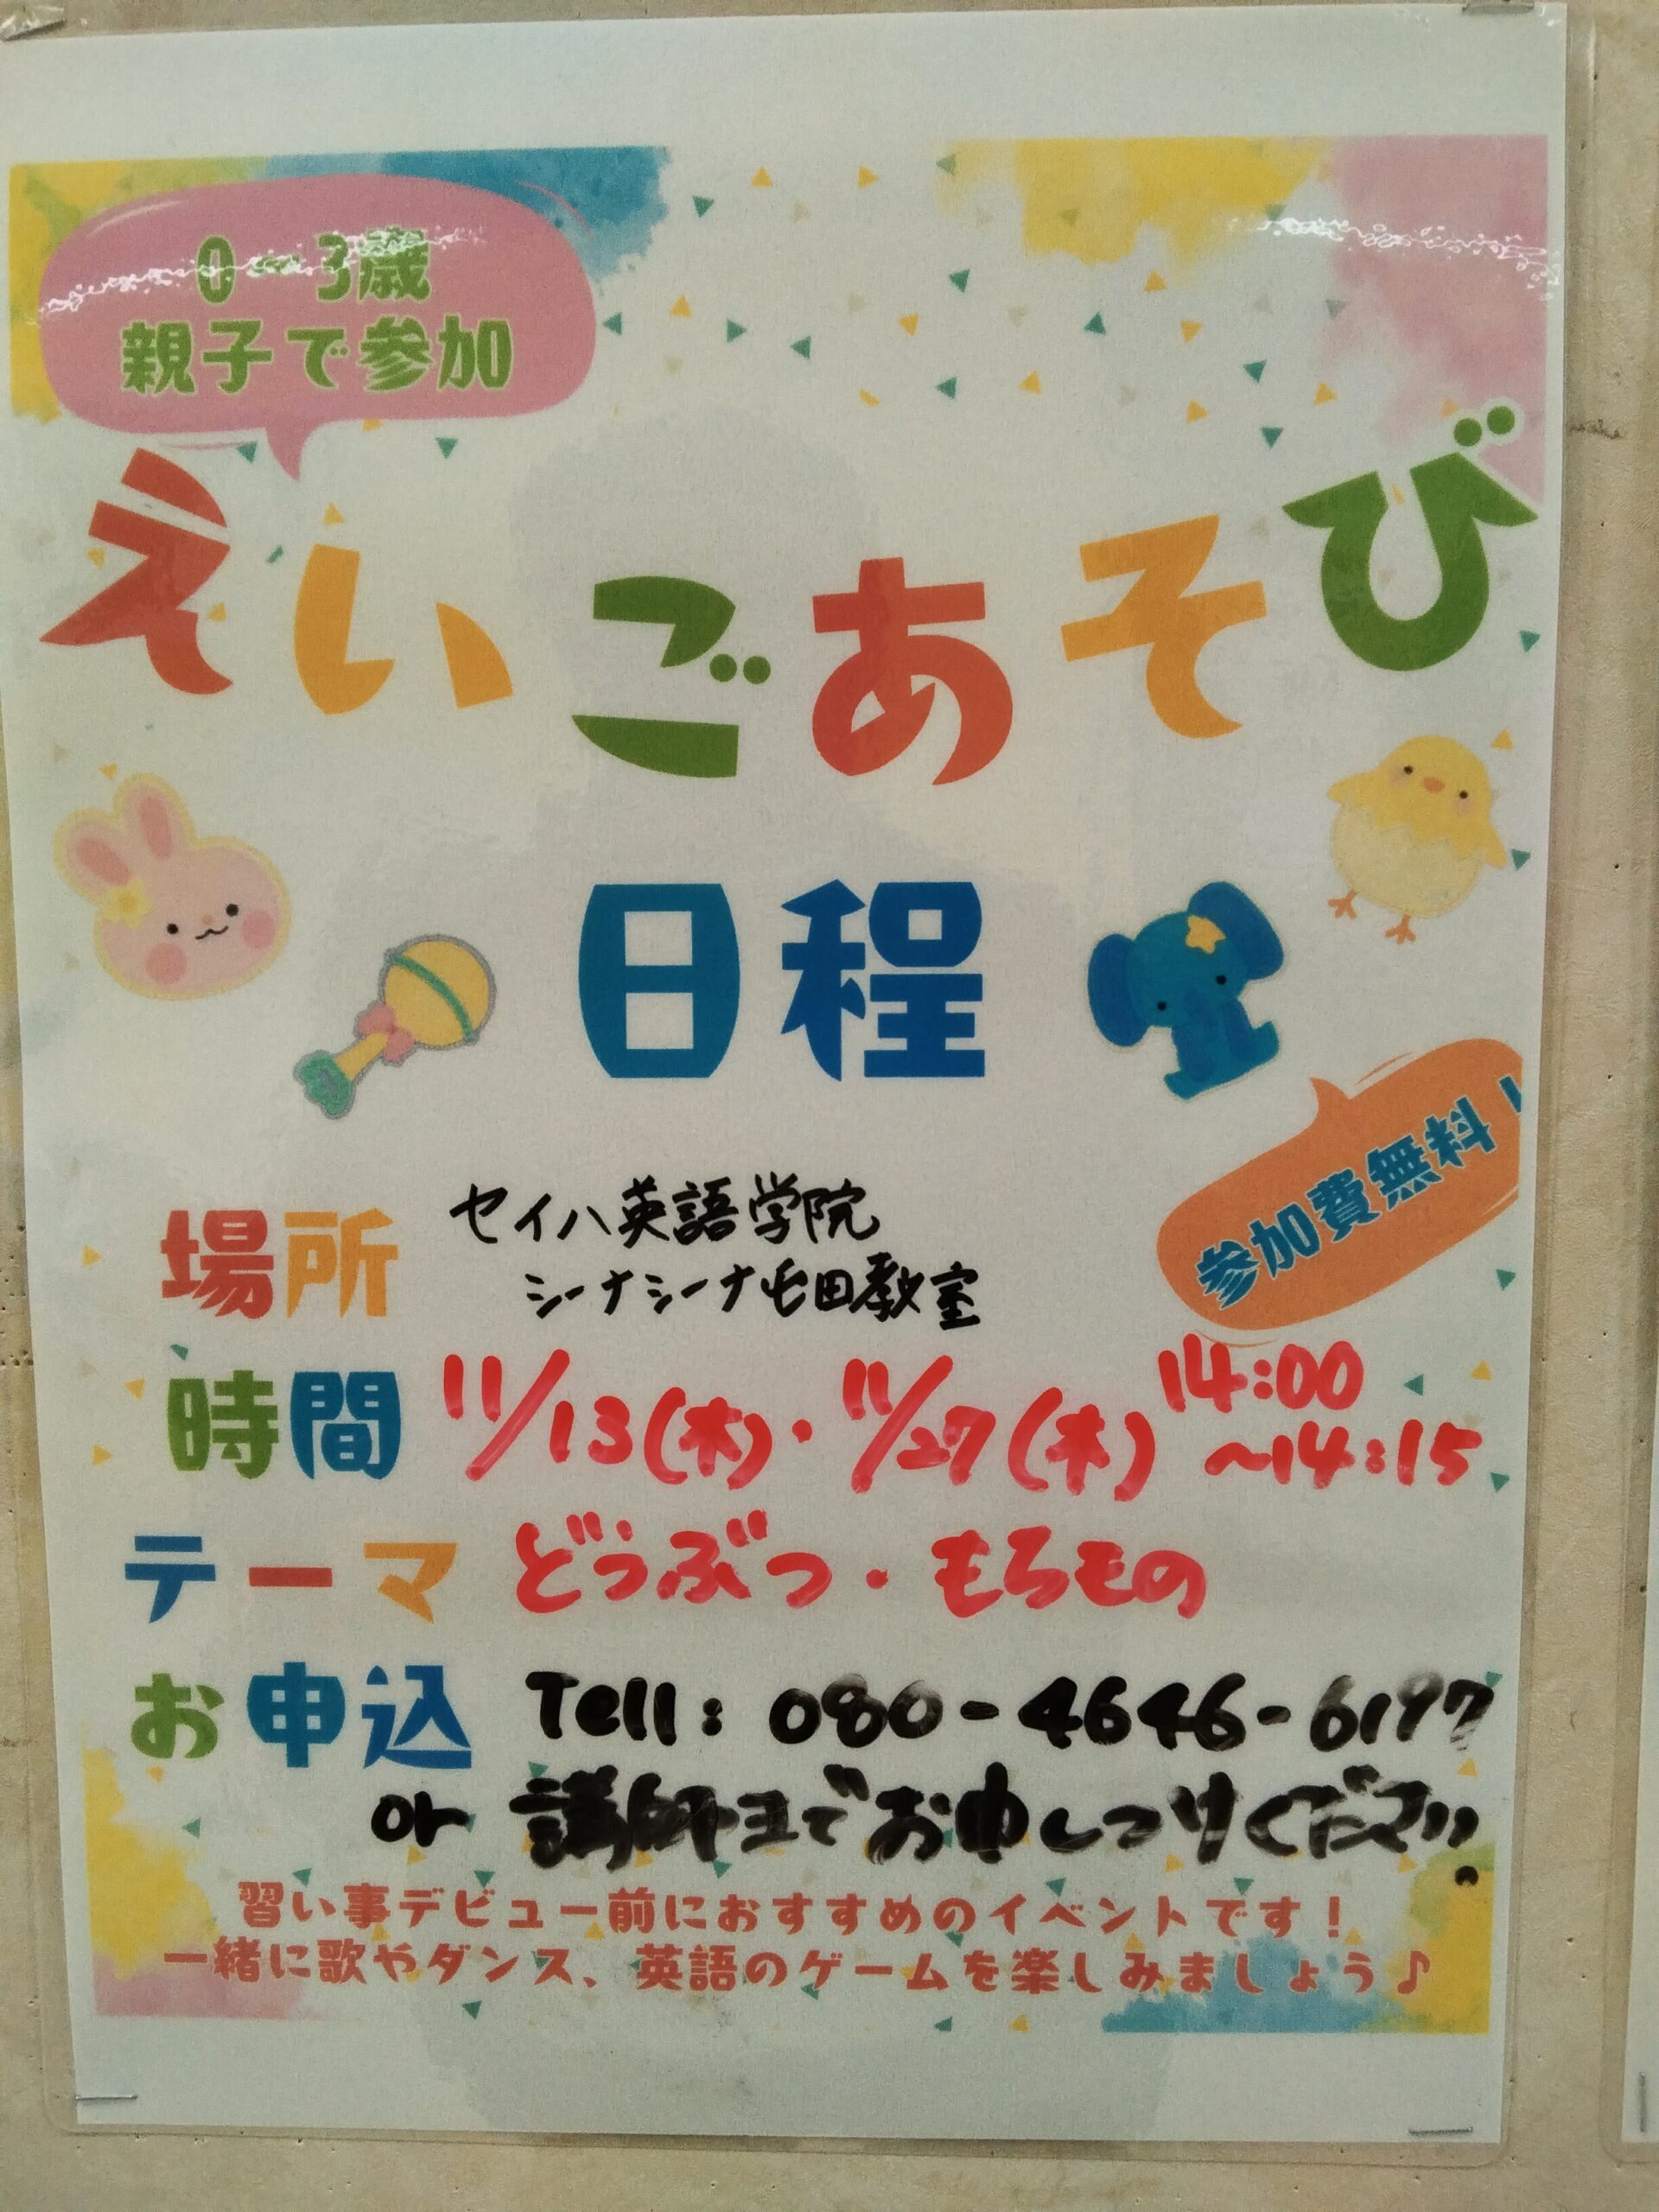 0〜3歳
親子で参加
えいごあそび
日程
参加費無料!
場所 セイハ英語学院
シーナシーナ屯田教室
時間 11/13(木)・11/27(木) 14:00
〜14:15
テーマ どうぶつ・もちもの
お申込 Tell: 080-4646-6197
or 講師までお申しつけください。
習い事デビュー前におすすめのイベントです!
一緒に歌やダンス、英語のゲームを楽しみましょう♪